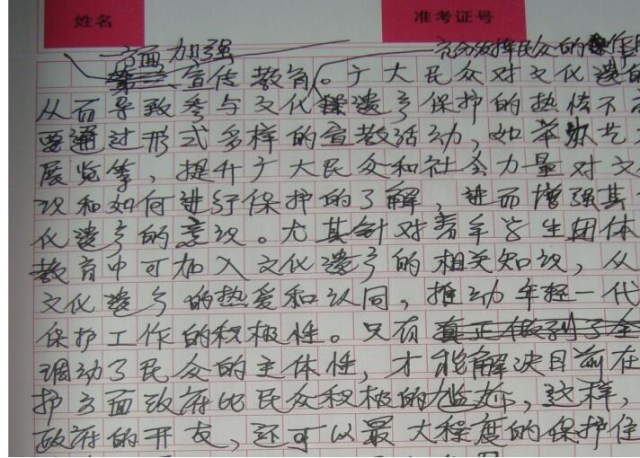 姓名 准考证号
一方面加强 充分发挥民众的作用
宣传教育。广大民众对文化遗
从而导致参与文化遗产保护的热情不
要通过形式多样的宣教活动，如举办艺
展览等，提升广大民众和社会力量对文
识和如何进行保护的了解，进而增强其
化遗产的意识。尤其针对青年学生团体
教育中可加入文化遗产的相关知识，从
文化遗产的热爱和认同，推动年轻一代
保护工作的积极性。只有真正做到了全
调动了民众的主体性，才能解决目前在
护方面政府比民众积极的尴尬，这样，
政府的开支，还可以最大程度的保护住